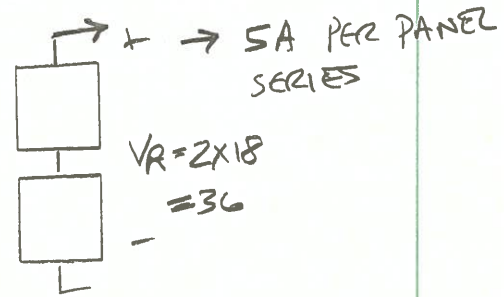 + → 5A PER PANEL
SERIES
VR=2X18
=36
-